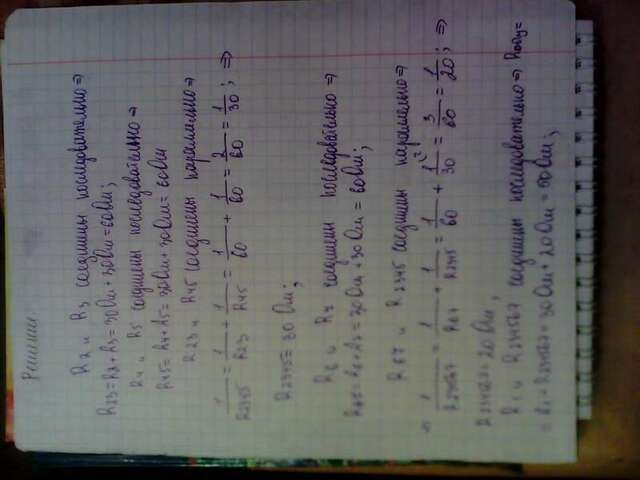 Решение:
R2 и R3 соединены последовательно ⇒
R23 = R2 + R3 = 30 Ом + 30 Ом = 60 Ом;
R4 и R5 соединены последовательно ⇒
R45 = R4 + R5 = 30 Ом + 30 Ом = 60 Ом
R23 и R45 соединены параллельно ⇒
1/R2345 = 1/R23 + 1/R45 = 1/60 + 1/60 = 2/60 = 1/30; ⇒
R2345 = 30 Ом;
R6 и R7 соединены последовательно ⇒
R67 = R6 + R7 = 30 Ом + 30 Ом = 60 Ом;
R67 и R2345 соединены параллельно ⇒
⇒ 1/R234567 = 1/R67 + 1/R2345 = 1/60 + 1/30 = 3/60 = 1/20; ⇒
R234567 = 20 Ом;
R1 и R234567 соединены последовательно ⇒ Rобщ =
= R1 + R234567 = 30 Ом + 20 Ом = 50 Ом;